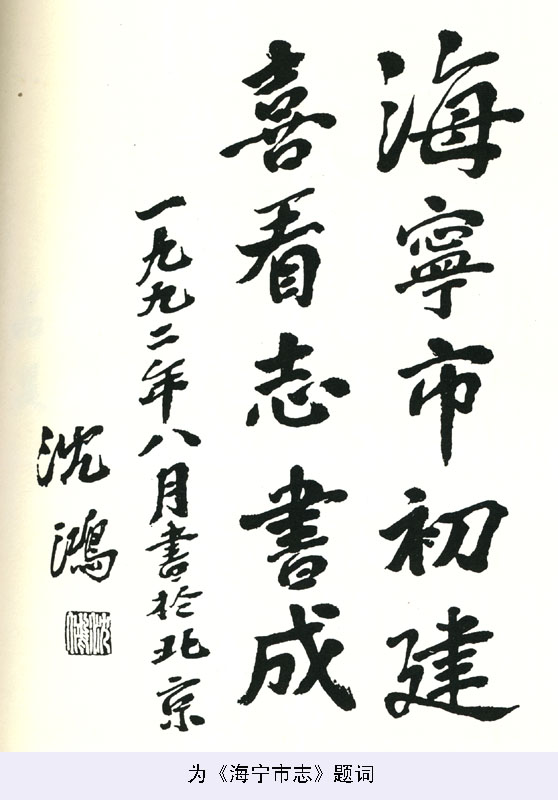 海寧市初建
喜看志書成
一九九二年八月書於北京
沈鴻
为《海宁市志》题词